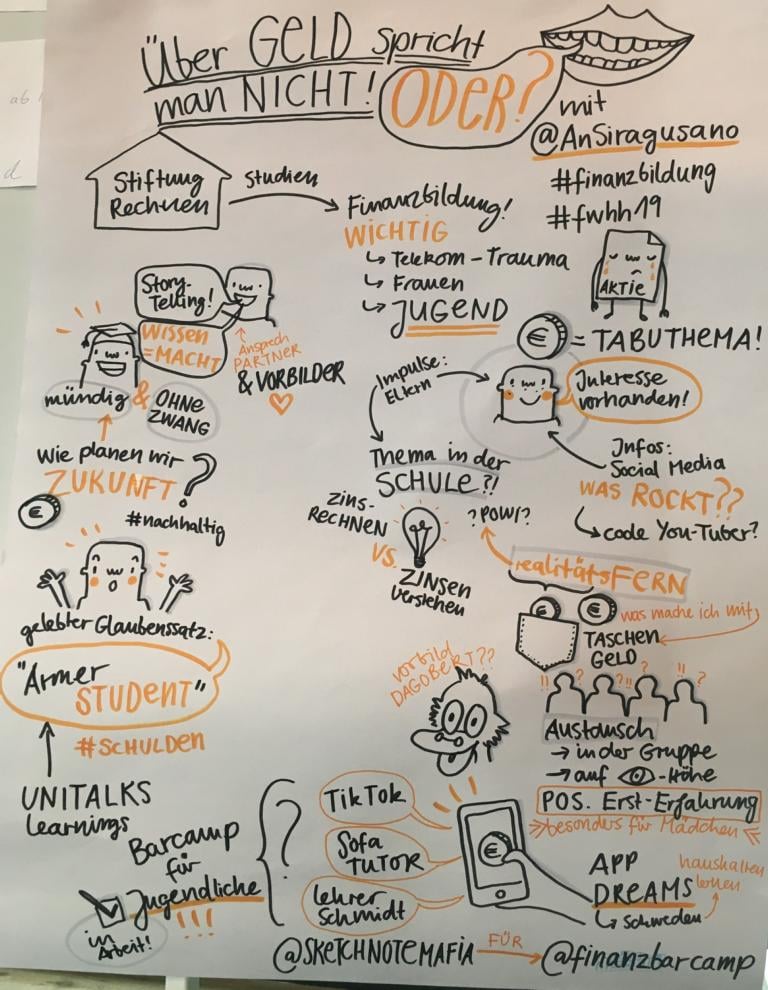 Über GELD spricht
man NICHT!
ODER?
mit
@AnSiragusano
#finanzbildung
#fwhh19
Stiftung
Rechnen
Studien
Finanzbildung!
WICHTIG
↳ Telekom-Trauma
↳ Frauen
↳ JUGEND
AKTIE
€ = TABUTHEMA!
Story-
Telling!
WISSEN
=MACHT
Ansprech
PARTNER
& VORBILDER
mündig & OHNE
ZWANG
Wie planen wir
ZUKUNFT?
€
#nachhaltig
Impulse:
Eltern
Interesse
vorhanden!
Thema in der
SCHULE?!
Infos:
Social Media
WAS ROCKT??
code You-Tuber?
ZINS-
RECHNEN
VS.
ZINSEN
verstehen
?POWI?
realitätsFERN
€ €
was mache ich mit
TASCHEN
GELD
gelebter Glaubenssatz:
"Armer
STUDENT"
#SCHULDEN
UNITALKS
Learnings
vorbild
DAGOBERT??
!! ? ?!! ? !! ?
Austausch
→ in der Gruppe
→ auf -Höhe
POS. Erst-Erfahrung
>> besonders für Mädchen <<
Barcamp
für
Jugendliche
!!!
in
Arbeit!
?
TikTok
Sofa
TUTOR
Lehrer
Schmidt
€
APP
DREAMS
↳ Schweden
haushalten
lernen
@SKETCHNOTEMAFIA FÜR → @finanzbarcamp